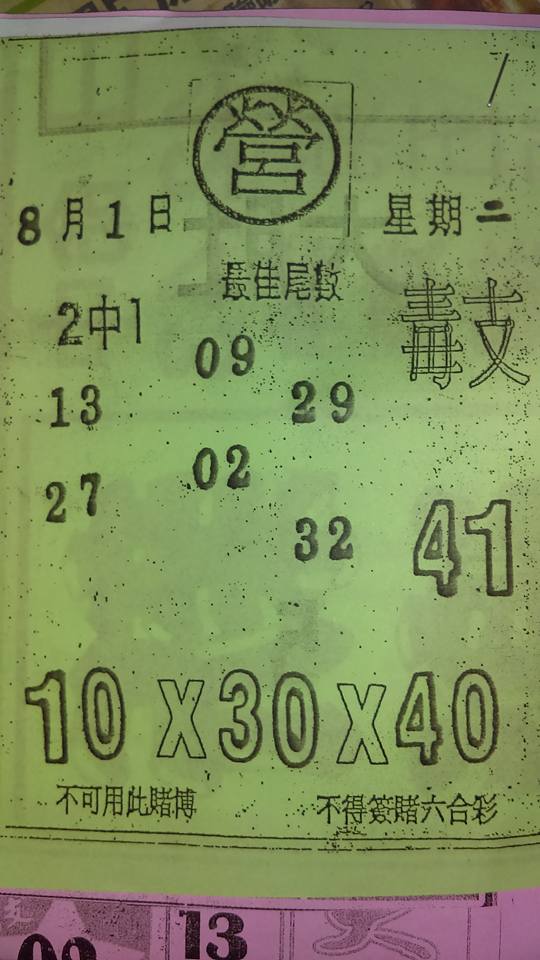 營
8月1日 星期二
最佳尾數
2中1
毒支
09
13 29
02
27
32
41
10X30X40
不可用此賭博 不得簽賭六合彩
13